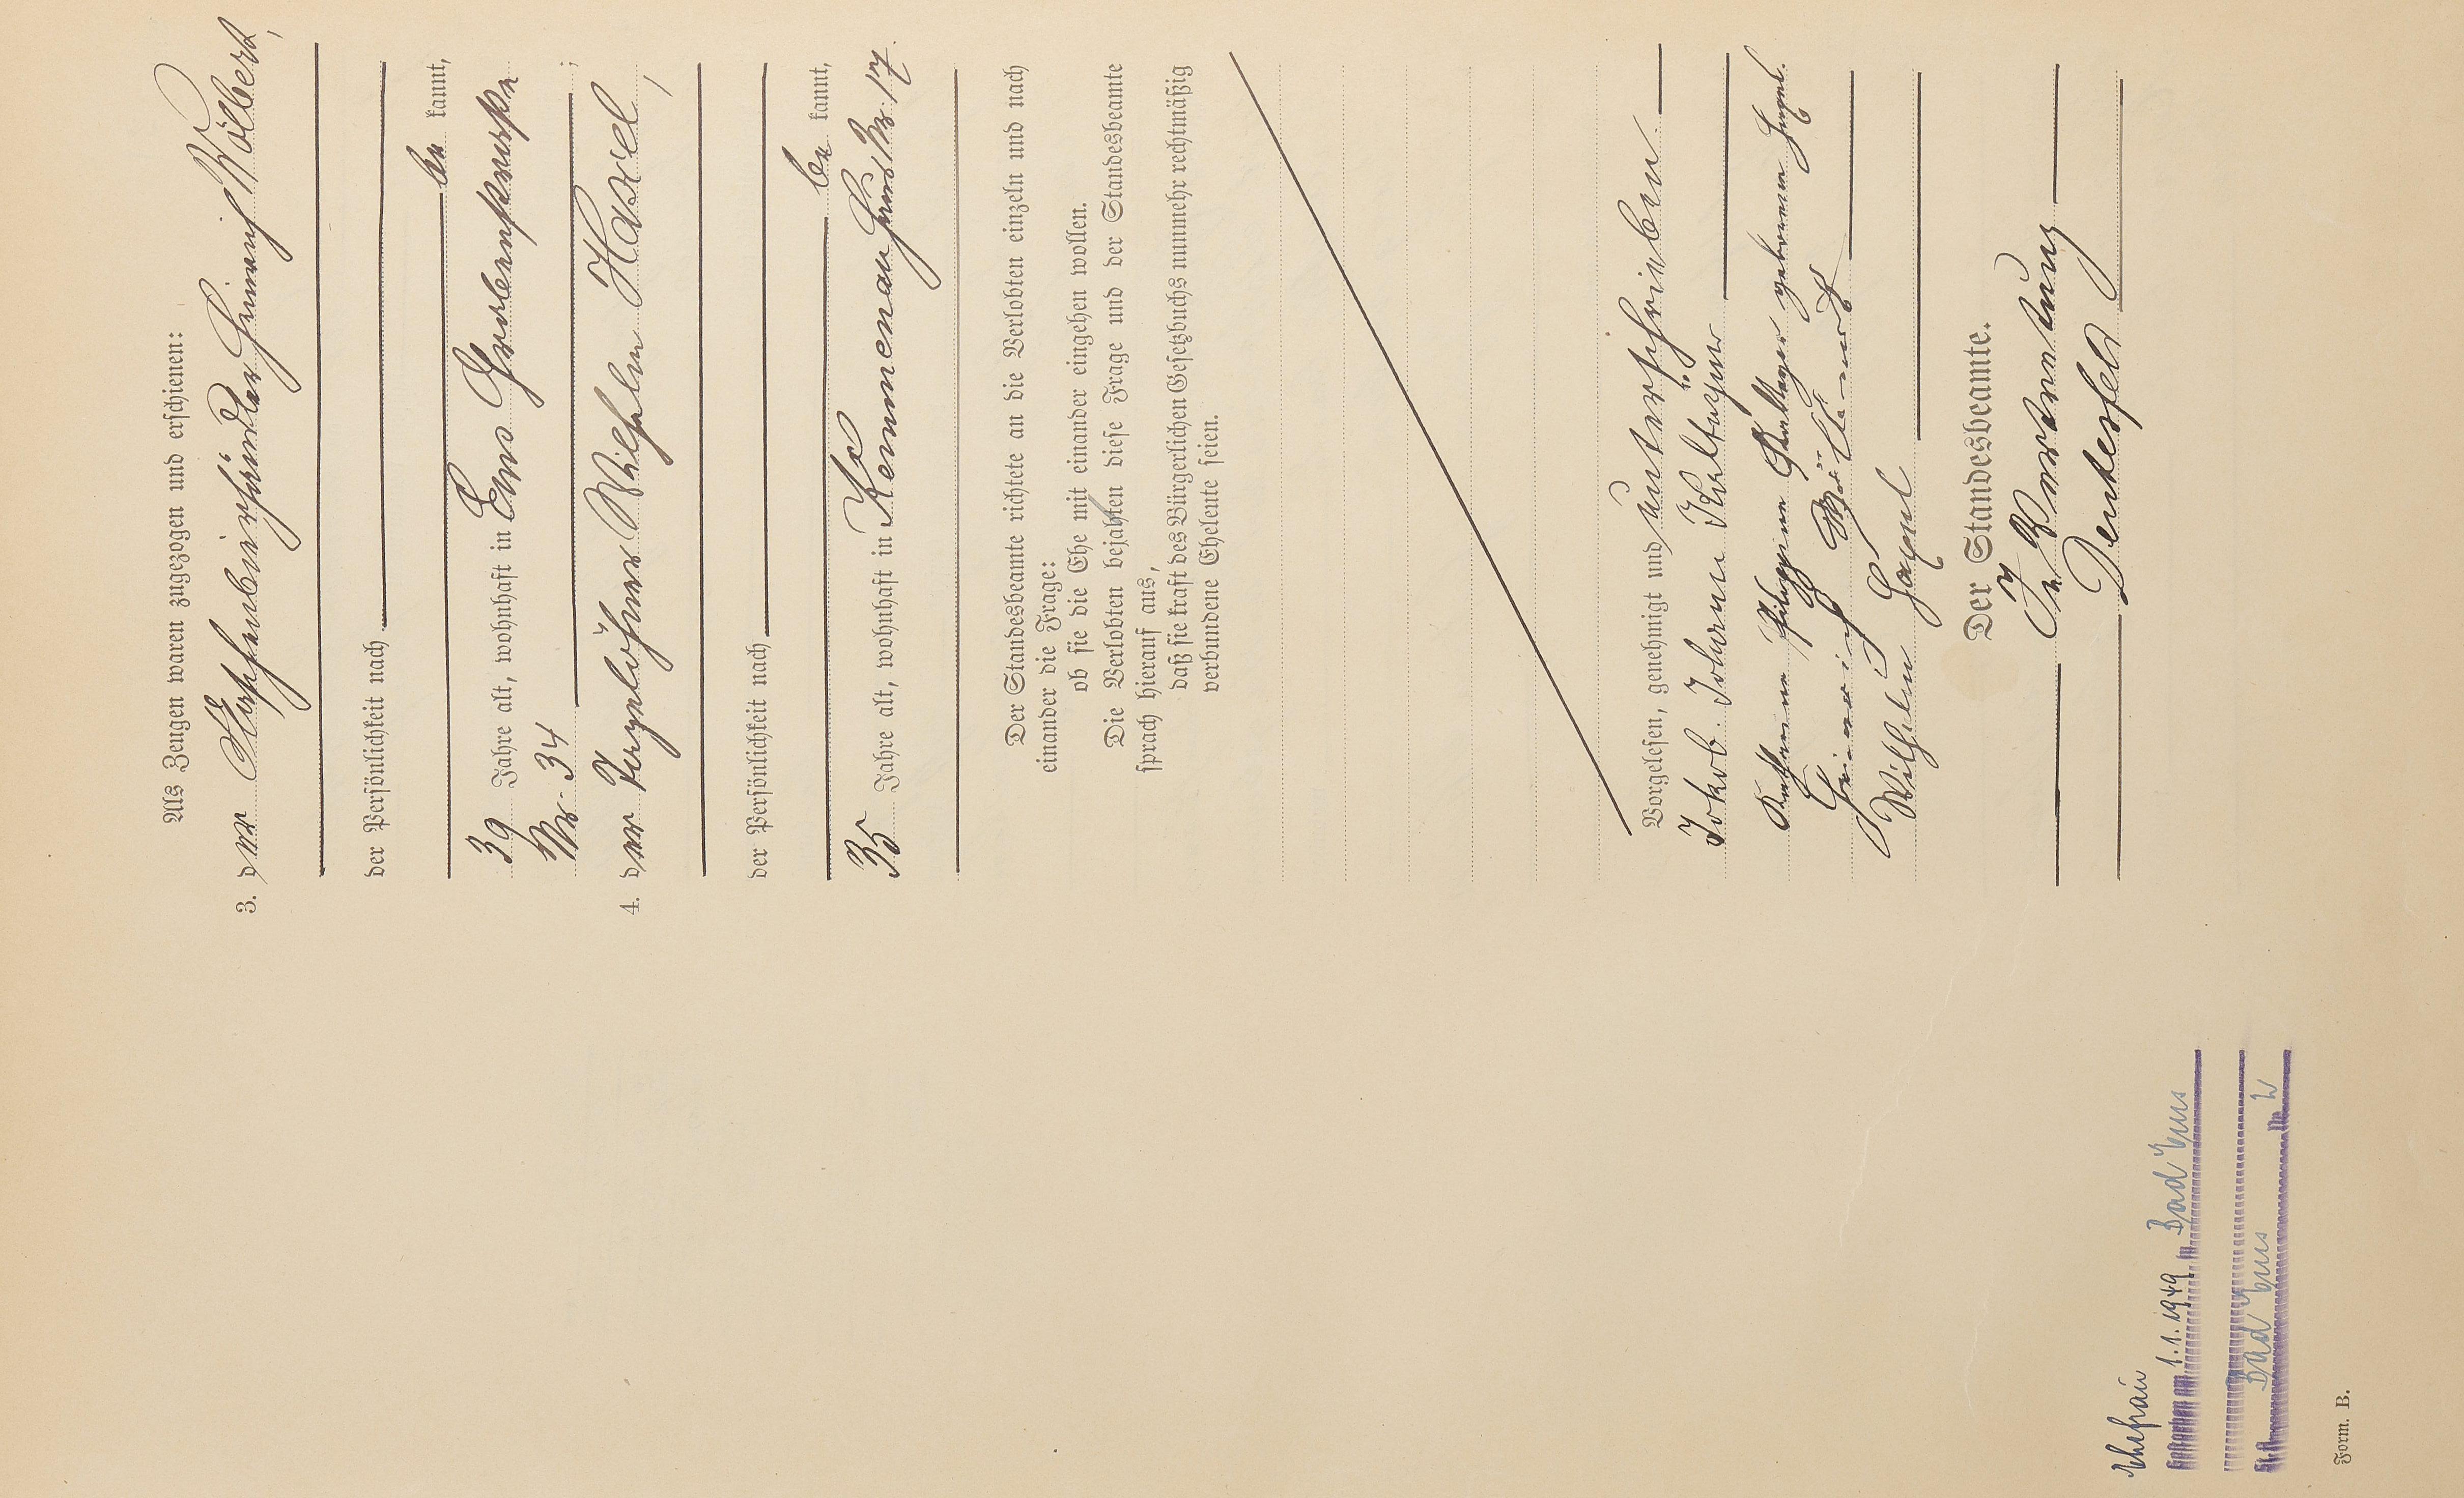 Als Zeugen waren zugezogen und erschienen:
3. der Flaschenbierhändler Heinrich Wölbert,
der Persönlichkeit nach
be kannt,
39 Jahre alt, wohnhaft in Ems Grabenstraße
Nr. 34 ;
4. der Tagelöhner Wilhelm Haxel,
der Persönlichkeit nach
be kannt,
35 Jahre alt, wohnhaft in Kemmenau Haus Nr. 17.
Der Standesbeamte richtete an die Verlobten einzeln und nach
einander die Frage:
ob sie die Ehe mit einander eingehen wollen.
Die Verlobten bejahten diese Frage und der Standesbeamte
sprach hierauf aus,
daß sie kraft des Bürgerlichen Gesetzbuchs nunmehr rechtmäßig
verbundene Eheleute seien.
Vorgelesen, genehmigt und unterschrieben.
Jakob Johann
Philippine geborene
Heinrich Wöllbert
Wilhelm Haxel
Der Standesbeamte.
In Vertretung
Ehefrau
Gestorben am 1.1.1949 in Bad Ems
Bad Ems
Form. B.